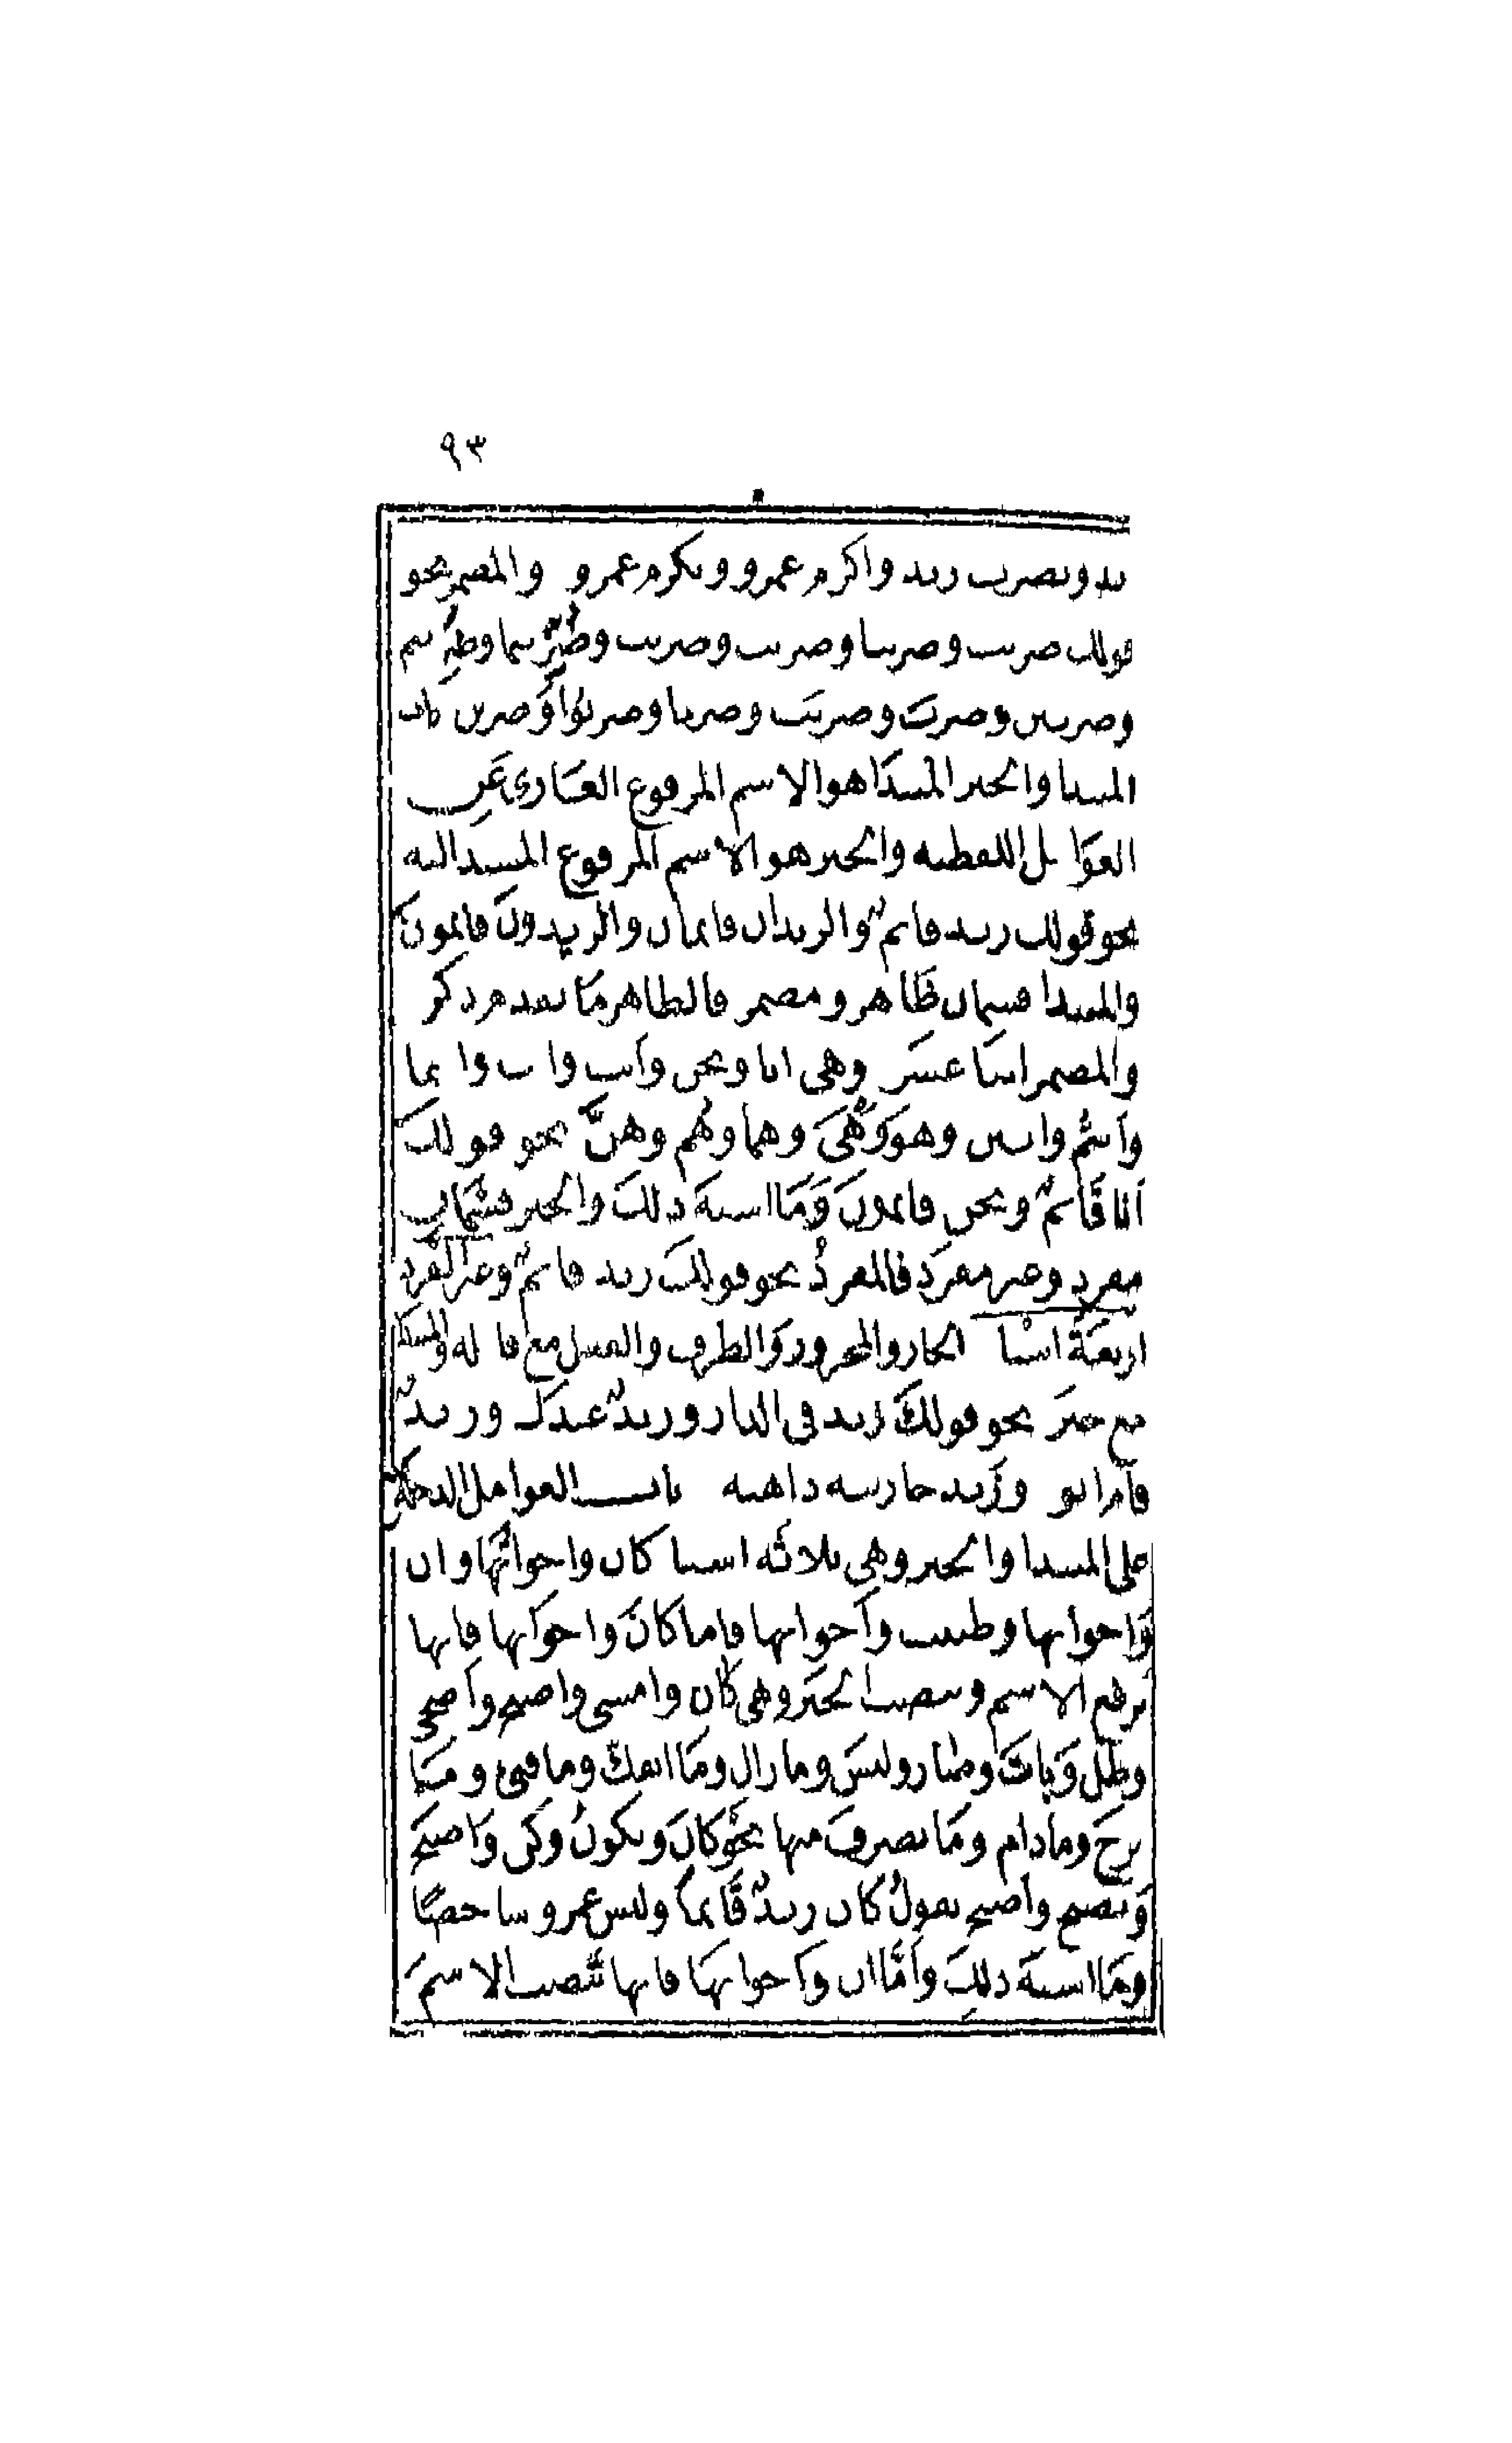 ٩٣
يد ويضرب زيد واكرم عمرو ويكرم عمرو والمضمر نحو
قولك ضربت وضربنا وضربت وضربت وضربتما وضربتم
وضربتن وضرب وضربت وضربا وضربوا وضربن باب
المبتدا والخبر المبتدا هو الاسم المرفوع العاري عن
العوامل اللفظيه والخبر هو الاسم المرفوع المسند اليه
نحو قولك زيد قائمٌ والزيدان قائمان والزيدون قائمونَ
والمبتدا قسمان ظاهر ومضمر فالظاهر ما تقدم ذكره
والمضمر اثنا عشر وهي انا ونحن وانت وانت وانتما
وانتم وانتن وهو وهي وهما وهم وهنَّ نحو قولك
انا قائمٌ ونحن قائمون وما اشبه ذلك والخبر قسمان
مفرد وغير مفرد فالمفرد نحو قولك زيد قائمٌ وغير المفرد
اربعة اشيا الجار والمجرور والظرف والفعل مع فاعله والمبتدا
مع خبره نحو قولك زيد في الدار وزيدٌ عندك وزيدٌ
قام ابوه وزيد جاريته ذاهبه باب العوامل الداخلة
على المبتدا والخبر وهي ثلاثه اشيا كان واخواتها وان
واخواتها وظننت واخواتها فاما كان واخواتها فانها
ترفع الاسم وتنصب الخبر وهي كان وامسى واصبح واضحى
وظل وبات وصار وليس وما زال وما انفك وما فتئ وما
برح وما دام وما تصرف منها نحو كان ويكون وكن واصبح
ويصبح واصبح تقول كان زيدٌ قائماً وليس عمرو شاخصًا
وما اشبه ذلك وامّا ان واخواتها فانها تنصب الاسم